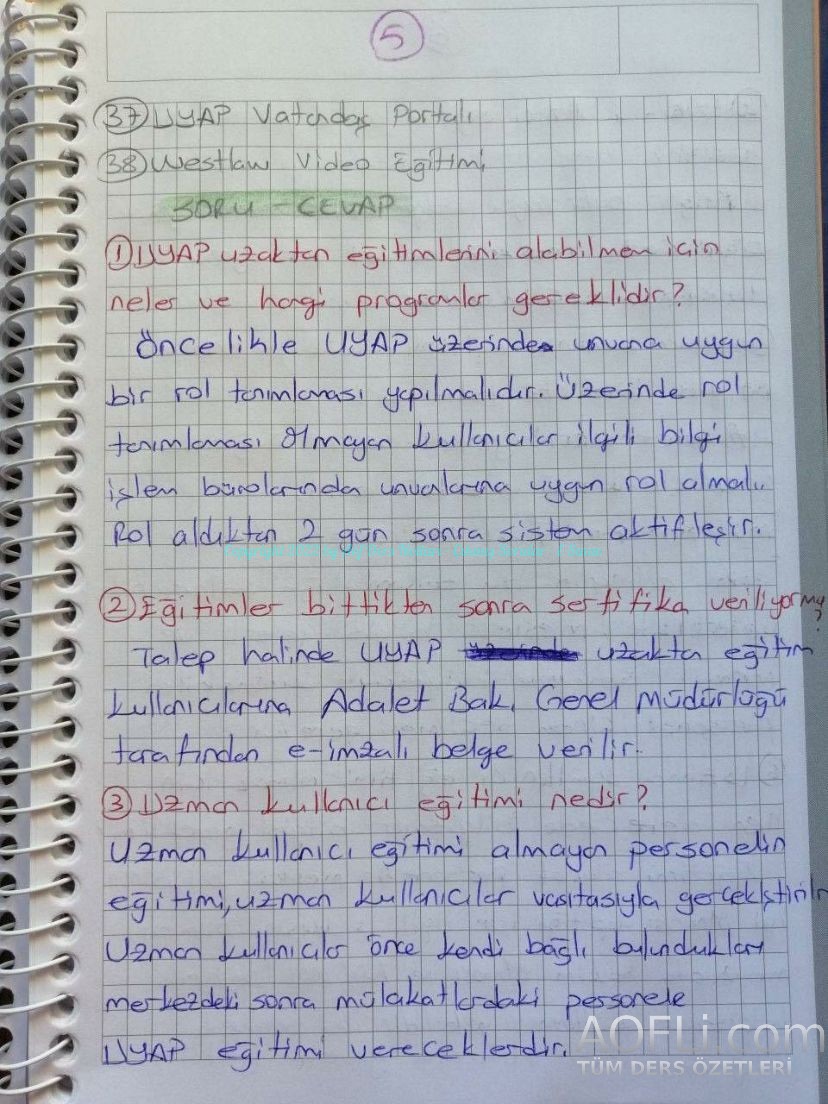 5
37 UYAP Vatandaş Portalı
38 Westlaw Video Eğitimi
SORU - CEVAP
1 UYAP uzaktan eğitimlerini alabilmem için
neler ve hangi programlar gereklidir?
Öncelikle UYAP üzerinde unvana uygun
bir rol tanımlaması yapılmalıdır. Üzerinde rol
tanımlaması olmayan kullanıcılar ilgili bilgi
işlem bürolarında unvanlarına uygun rol almalı.
Rol aldıktan 2 gün sonra sistem aktifleşir.
2 Eğitimler bittikten sonra sertifika veriliyor my
?
Talep halinde UYAP uzaktan eğitim
kullanıcılarına Adalet Bak. Genel Müdürlogü
tarafından e-imzalı belge verilir.
3 Uzman kullanıcı eğitimi nedir?
Uzman kullanıcı eğitimi almayan personelin
eğitimi, uzman kullanıcılar vasıtasıyla gerçekleştirilir
Uzman kullanıcılar önce kendi bağlı bulundukları
merkezdeki sonra mülakatlardaki personele
UYAP eğitimi vereceklerdir.
AOFLi.com
TÜM DERS ÖZETLERİ